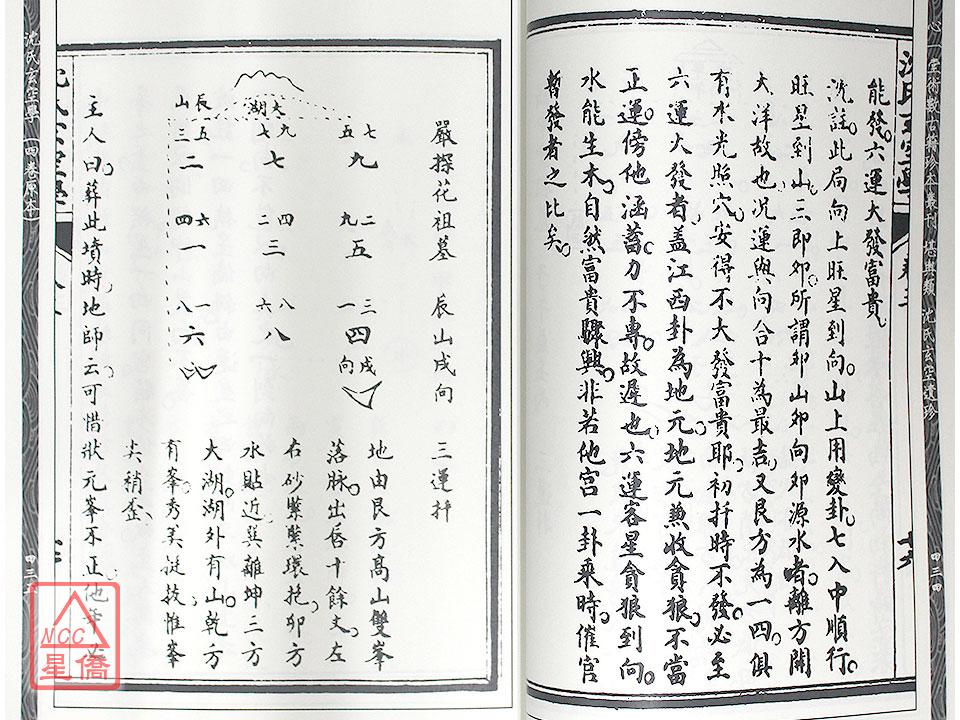 心一堂術數古籍珍本叢刊 堪輿類 沈氏玄空遺珍
四三四
能發。六運大發富貴。
沈註。此局向上旺星到向。山上用變卦。七入中順行。
旺星到山。三即卯。所謂卯山卯向卯源水者。離方開
大洋故也。況運與向合十為最吉。又艮方為一四。俱
有水光照穴。安得不大發富貴耶。初扦時不發。必至
六運大發者。蓋江西卦為地元。地元兼收貪狼。不當
正運。傍他涵蓄。力不專。故遲也。六運客星貪狼到向。
水能生木。自然富貴驟興。非若他宮一卦乘時。催官
暫發者之比矣。
嚴探花祖墓 辰山戌向 三運扞
七 五 九
二 九 五
三 一 四 戌 向
九 七 七
四 二 三
八 六 八
五 三 二
六 四 一
一 八 六
大湖
辰山
地由艮方高山雙峯
落脉。出唇十餘丈。左
右砂緊緊環抱。卯方
水貼近。巽離坤三方
大湖。湖外有山。乾方
有峯。秀美挺拔。惟峯
尖稍歪。
主人曰。葬此墳時。地師云。可惜狀元峯不正。他年必
沈氏玄空學 四卷原本
NCC
星僑